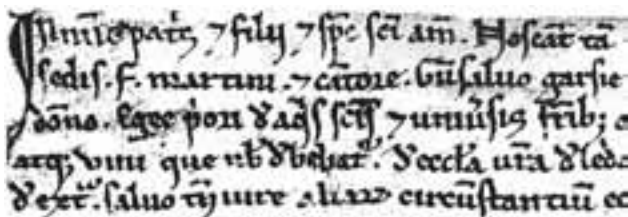 In noīe patˢ ⁊ filij ⁊ spc̄ sc̄i am̄. Noscāt tā
sedis. f. martini. ⁊ cātore. Gūsaluo garsie
dōno. Egee p̄ori d̄ aqˢ sc̄ıs ⁊ uniūsis fr̄ib;
atq; vini que nb̄ d̄bebat᷑. d̄ eccl̄a ur̄a d̄ ledo
d̄ ext᷑. saluo tn̄ iure aliaꝝ circūstantiū ec